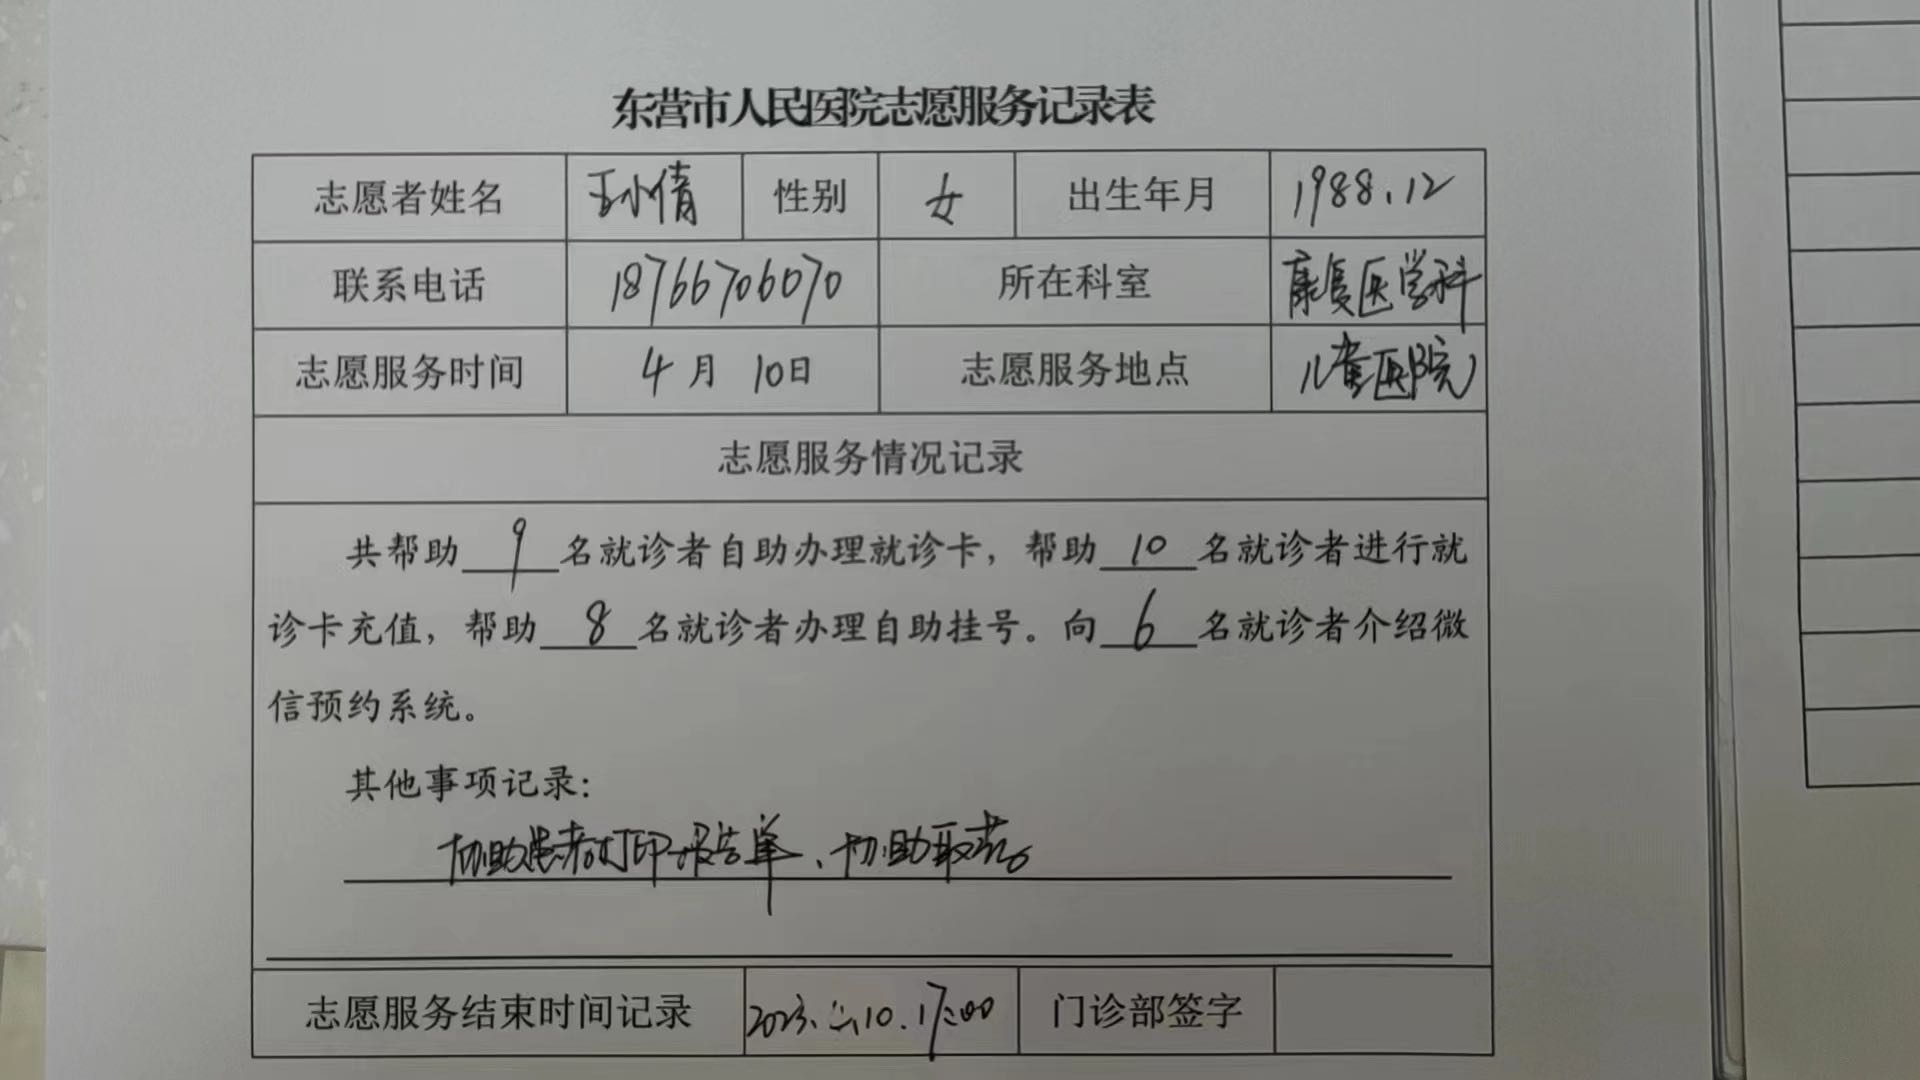 东营市人民医院志愿服务记录表
志愿者姓名 王小倩 性别 女 出生年月 1988.12
联系电话 18766706070 所在科室 康复医学科
志愿服务时间 4月 10日 志愿服务地点 儿童医院
志愿服务情况记录
共帮助 9 名就诊者自助办理就诊卡，帮助 10 名就诊者进行就
诊卡充值，帮助 8 名就诊者办理自助挂号。向 6 名就诊者介绍微
信预约系统。
其他事项记录：
协助患者打印报告单、协助取药。
志愿服务结束时间记录 2023. 10.17:00 门诊部签字